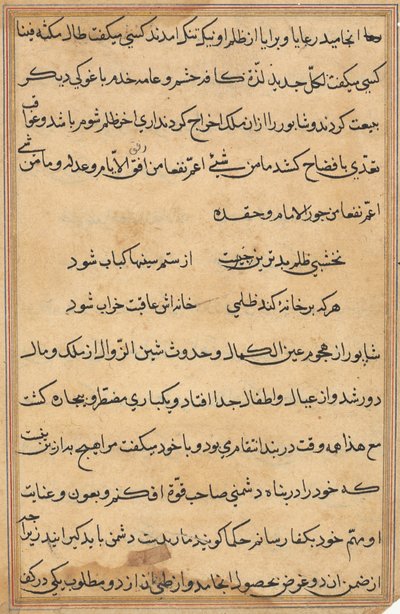 انجامید رعایا و برایا از ظلم او بتنک امدند کسی میکفت طال مکثه فینا
کسی میکفت لکل جدید لذة کافهٔ حشم و عامهٔ خدم با غوکی دیکر
بیعت کردند و شابور را از ان ملک اخراج کردند اری اخر ظلم شوم باشد و عواقب
تعدی بافضاح کشد ما من شیٔ اعم نفعا من رفق الامام وعدله وما من شیٔ
اعم نفعا من جور الامام و حقده
نخشبی ظلم بدترین چیزیست از ستم سینها کباب شود
هر که بر خانهٔ کند ظلمی خانه اش عاقبت خراب شود
شابور از هجوم عین الکمال و حدوث شین الزوال از ملک و مال
دور شد و از عیال و اطفال جدا افتاد و یکباری مضطر و بیچاره کشت
مع هذا همه وقت در بند انتقام می بود و با خود میکفت مرا هیچ به ازین نیست
که خود را در پناه دشمنی صاحب قوة افکنم و بعون و عنایت
او مهم خود بکفا رسانم حکما کویند مار بدست دشمن باید کیرانید زیرا چه
از ضمن ان دو غرض بحصول انجامد و از طی ان از دو مطلوب یکی در کف